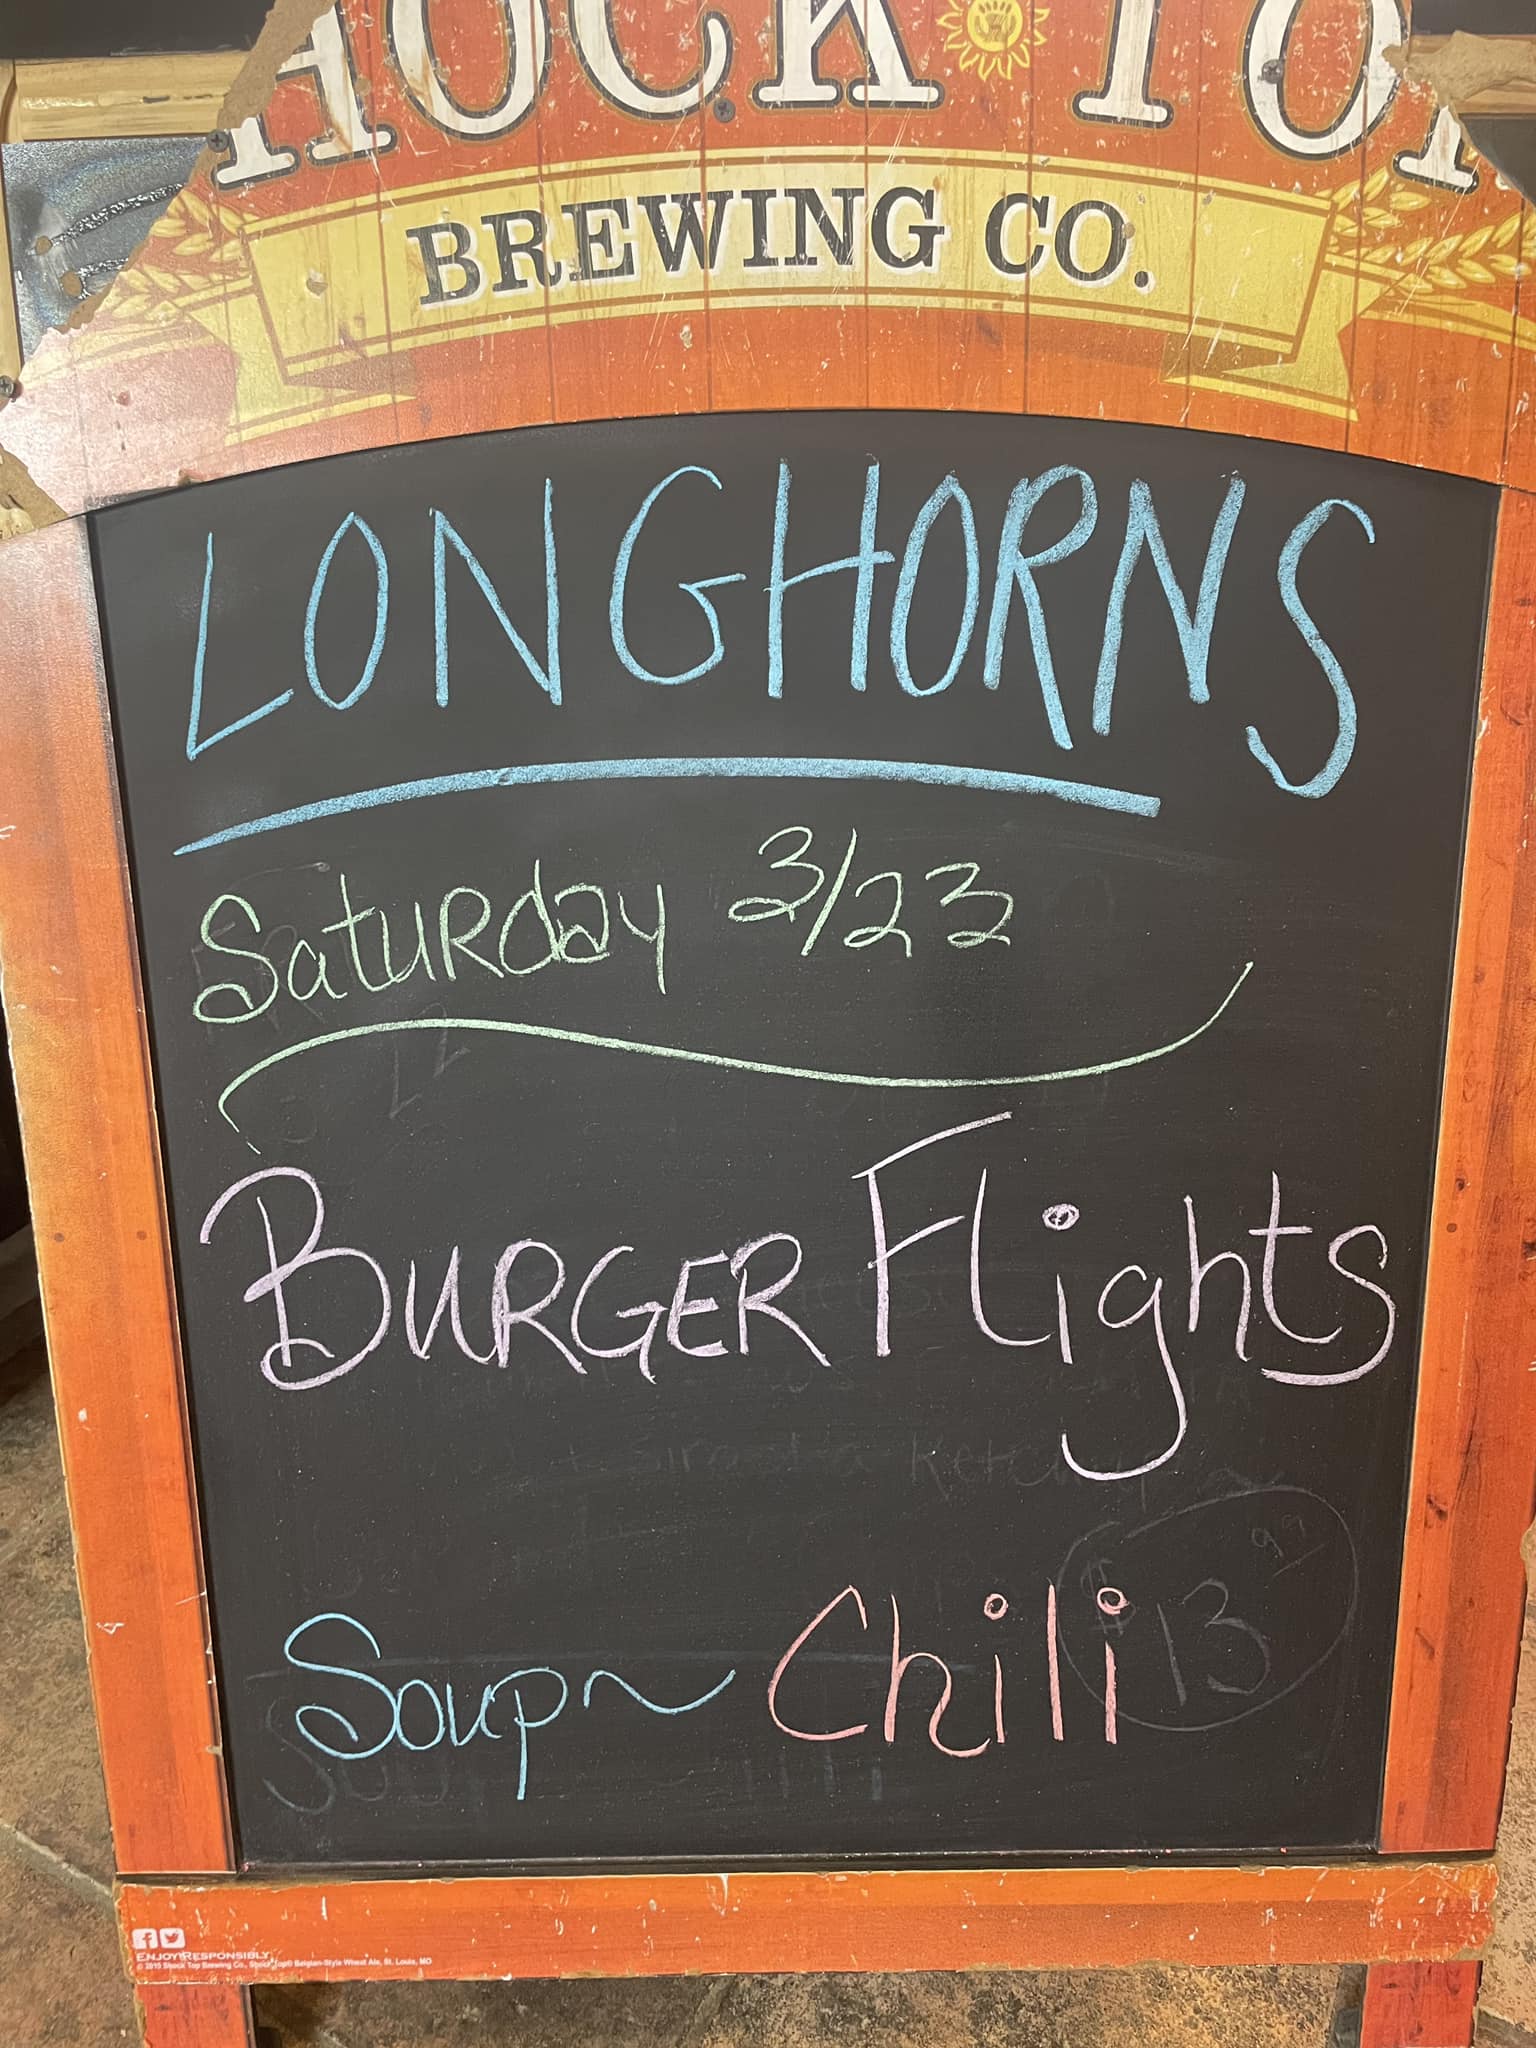 HOCK TOP
BREWING CO.
LONGHORNS
Saturday 3/23
BURGER FLights
Soup~ Chili
$13.99
ENJOY RESPONSIBLY
© 2015 Shock Top Brewing Co., Shock Top® Belgian-Style Wheat Ale, St. Louis, MO